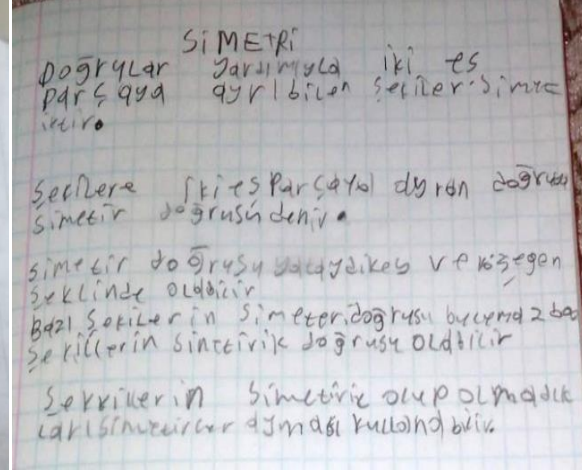 SİMETRİ
Doğrular yardımıyla iki eş
parçaya ayrlbilen şeciller simet
iktir.
Şecilere iki eş Parçaya ayıran doğrusu
simetir doğrusu denir.
simetir doğrusu yatay dikey ve köşegen
şeklinde olabilir
Bazı Şekiler in Simeter doğrusu
Şekillerin doğrusu olabilir
Simetiric olup olmadık
aynası kullanıla bilir.